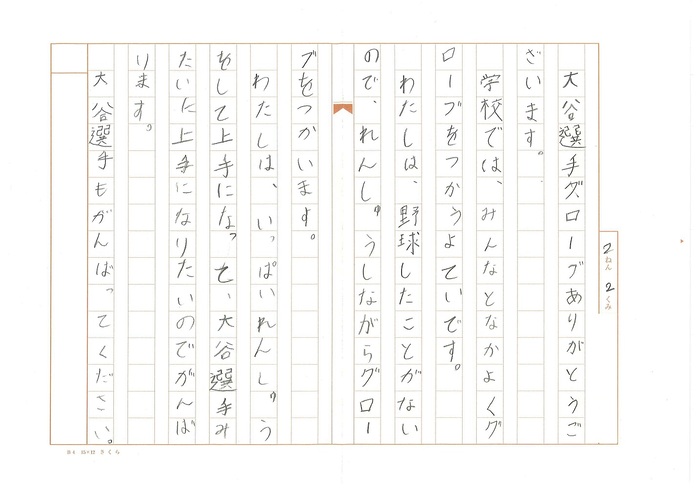 2ねん2くみ
大谷選手グローブありがとうご
ざいます。
学校では、みんなとなかよくグ
ローブをつかうよていです。
わたしは、野球したことがない
ので、れんしゅうしながらグロー
ブをつかいます。
わたしは、いっぱいれんしゅう
をして上手になって、大谷選手み
たいに上手になりたいのでがんば
ります。
大谷選手もがんばってください。